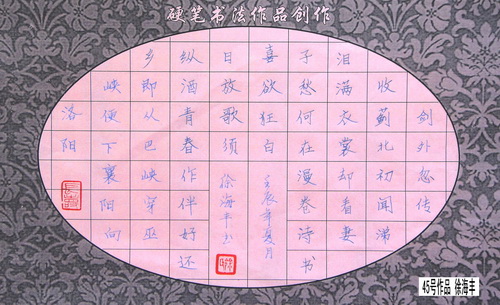 硬笔书法作品创作
剑外忽传
收蓟北初闻涕
泪满衣裳却看妻
子愁何在漫卷诗书
喜欲狂白
日放歌须
纵酒青春作伴好还
乡即从巴峡穿巫
峡便下襄阳向
洛阳
壬辰年夏月
徐海丰书
45号作品 徐海丰